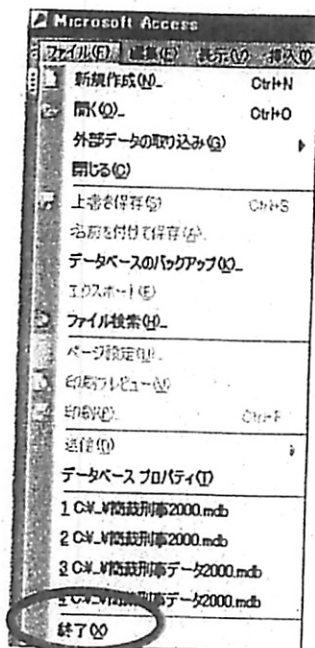 Microsoft Access
ファイル(F) 編集(E) 表示(V) 挿入(I)
新規作成(N)... Ctrl+N
開く(O)... Ctrl+O
外部データの取り込み(G)
閉じる(C)
上書き保存(S) Ctrl+S
名前を付けて保存(A)...
データベースのバックアップ(K)...
エクスポート(E)
ファイル検索(H)...
ページ設定(U)...
印刷プレビュー(V)
印刷(P)... Ctrl+P
送信(D)
データベース プロパティ(T)
1 C:¥...¥簡裁刑事2000.mdb
2 C:¥...¥簡裁刑事2000.mdb
3 C:¥...¥簡裁刑事データ2000.mdb
4 C:¥...¥簡裁刑事データ2000.mdb
終了(X)